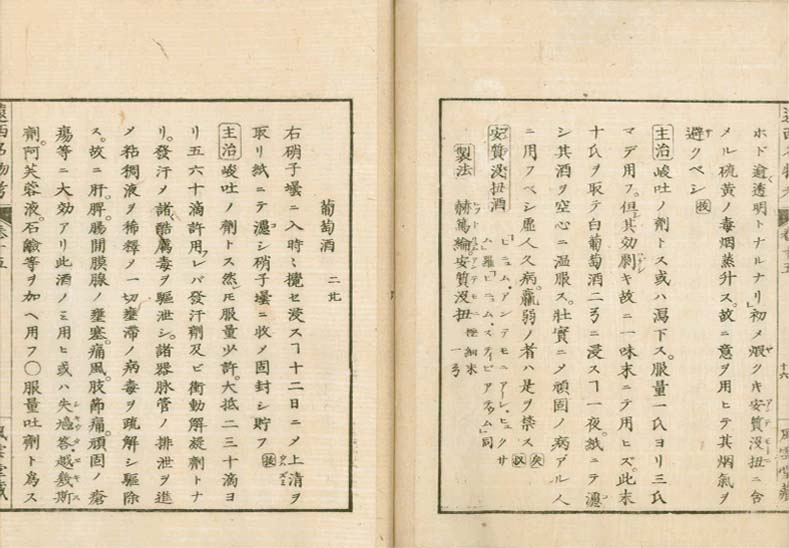 ホド逾透明トナルナリ」初メ煆クキ安質沒扭ニ含
メル硫黄ノ毒烟蒸升ス。故ニ意ヲ用ヒテ其烟氣ヲ
避クベシ
主治 峻吐ノ劑トス或ハ瀉下ス。服量一氏ヨリ三氏
マデ用フ。但其効劇キ故ニ一味末ニテ用ヒズ。此末
十氏ヲ取テ白葡萄酒二弓ニ浸スヿ一夜。紙ニテ濾
シ其酒ヲ空心ニ温服ス。壯實ニメ頑固ノ病アル人
ニ用フベシ虚人久病。羸弱ノ者ハ是ヲ禁ス
安質沒扭酒 ヒニュム・アンテモニアーレ・ヒュクサ
ム」羅ビニュム・スティビアテュム」同
製法 赫篤綸安質沒扭 極細末 一弓
葡萄酒 二
右硝子壜ニ入時々攪セ浸スヿ十二日ニメ上清ヲ
取リ紙ニテ濾シ硝子壜ニ收メ固封シ貯フ
主治 峻吐ノ劑トス然ルモ服量少許。大抵二三十滴ヨ
リ五六十滴許用フレバ發汗劑及ビ衝動解凝劑トナ
リ。發汗メ諸酷厲毒ヲ驅泄シ。諸器脉管ノ排泄ヲ進
メ粘稠液ヲ稀釋ノ一切壅滯ノ病毒ヲ疏解シ驅除
ス。故ニ肝。脾。腸間膜腺ノ壅塞。痛風。肢節痛。頑固ノ瘡
瘍等ニ大効アリ此酒ノミ用ヒ或ハ失鳩答越幾斯
劑。阿芙蓉液。石鹼等ヲ加ヘ用フ〇服量吐劑ト爲ス
十六
風雲堂藏